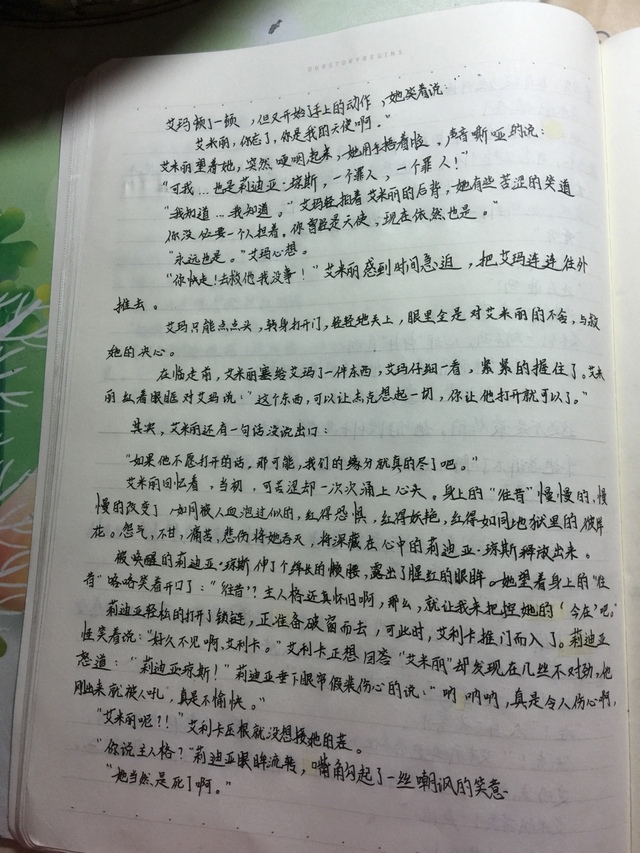 艾玛顿了一顿，但又开始了手上的动作，她笑着说：
“艾米丽，你忘了，你是我的天使啊。”
艾米丽望着她，突然哽咽起来，她用手捂着脸，声音嘶哑的说：
“可我...也是莉迪亚·琼斯，一个罪人，一个罪人！”
“我知道...我知道。”艾玛轻拍着艾米丽的后背，她有些苦涩的笑道
你没必要一个人担着。你曾经是天使，现在依然也是。”
“永远也是。”艾玛心想。
“你快走！去救他我没事！”艾米丽感到时间急迫，把艾玛连连往外
推去。
艾玛只能点点头，转身打开门，轻轻地关上，眼里全是对艾米丽的不舍，与救
她的决心。
在临走前，艾米丽塞给艾玛了一件东西，艾玛仔细一看，紧紧的握住了。艾米
丽红着眼眶对艾玛说：“这个东西，可以让杰克想起一切，你让他打开就可以了。”
其实，艾米丽还有一句话没说出口：
“如果他不愿打开的话，那可能，我们的缘分就真的尽了吧。”
艾米丽回忆着，当初，可苦涩却一次次涌上心头。身上的“往昔”慢慢的、慢
慢的改变了，如同被人血泡过似的，红得恐惧，红得妖艳，红得如同地狱里的彼岸
花。怨气，不甘，痛苦，悲伤将她吞灭，将深藏在心中的莉迪亚·琼斯释放出来。
被唤醒的莉迪亚·琼斯伸了个绵长的懒腰，露出了腥红的眼眸。她望着身上的“往
昔”咯咯笑着开口了：“‘往昔’？主人格还真怀旧啊，那么，就让我来把控她的‘今在’吧。”
莉迪亚轻松的打开了锁链，正准备破窗而去，可此时，艾利卡推门而入了。莉迪亚
怪笑着说：“好久不见啊，艾利卡。”艾利卡正想回答“艾米丽”却发现存几丝不对劲，他
怒道：“莉迪亚琼斯！”莉迪亚垂下眼帘假装伤心的说：“呐呐呐，真是令人伤心啊，
刚出来就被人吼，真是不愉快。”
“艾米丽呢？！”艾利卡压根就没想接她的茬。
“你说主人格？”莉迪亚眼眸流转，嘴角勾起了一丝嘲讽的笑意。
“她当然是死了啊。”